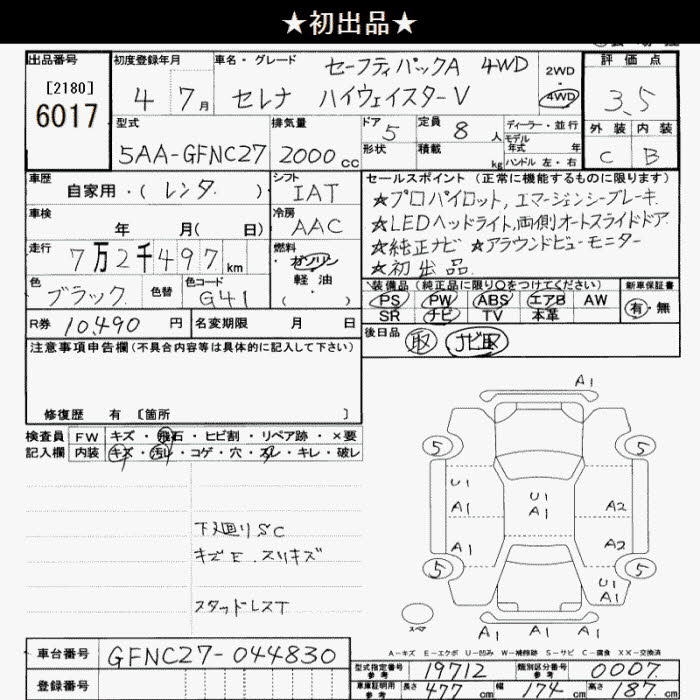 ★初出品★
出品番号
[2180]
6017
初度登録年月
4 7月
車名・グレード
セーフティパックA 4WD
セレナ ハイウェイスターV
2WD
4WD
評価点
3.5
外装 内装
C B
型式
5AA-GFNC27
排気量
2000cc
ドア
5
定員
8人
形状
積載
kg
ディーラー・並行
モデル
年式 年
ハンドル 左・右
車歴
自家用・(レンタ)
シフト
IAT
車検
年 月( 日)
冷房
AAC
走行
7万2千497km
燃料
ガソリン
軽油
( ・ )
色
ブラック
色替
色コード
G41
R券 10,490円
名変期限 月 日
セールスポイント(正常に機能するものに限ります)
★プロパイロット,エマージェンシーブレーキ.
★LEDヘッドライト,両側オートスライドドア
★純正ナビ ★アラウンドビューモニター
★初出品
装備品(純正品に限り○をつけてください)
PS PW ABS エアB AW
SR ナビ TV 本革
新車保証書
有・無
後日品 取 ナビ取
注意事項申告欄(不具合内容等は具体的に記入して下さい)
修復歴 有 〔箇所 〕
検査員
記入欄
FW キズ・飛石・ヒビ割・リペア跡・×要
内装 キズ・汚れ・コゲ・穴・スレ・キレ・破レ
下廻りSC
キズE.スリキズ
スタッドレスT
A1
5 5
U1
A1
U1
A1
A2
A1
A2
5 5
U1
A1
スペア
A1 A1 A1
A-キズ E-エクボ U-凹み W-補修跡 S-サビ C-腐食 XX-交換済
車台番号 GFNC27-044830
登録番号
型式指定番号
参考
19712
類別区分番号
参考
0007
車庫証明用
参考
長さ 477cm 幅 174cm 高さ 187cm